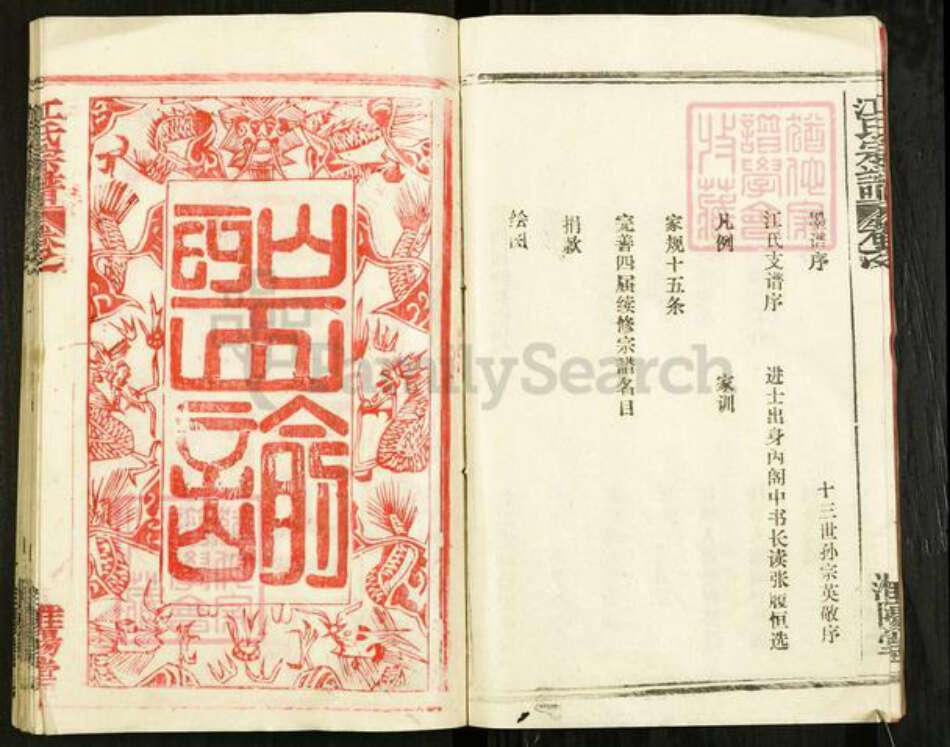 江氏宗譜
谱序
十三世孙宗英敬序
江氏支谱序
进士出身内阁中书长读张履恒选
凡例
家训
家规十五条
完善四届续修宗譜名目
捐款
绘图
淮陽堂
聖諭
江氏宗譜
淮陽堂
猶他家譜學會收藏
FamilySearch